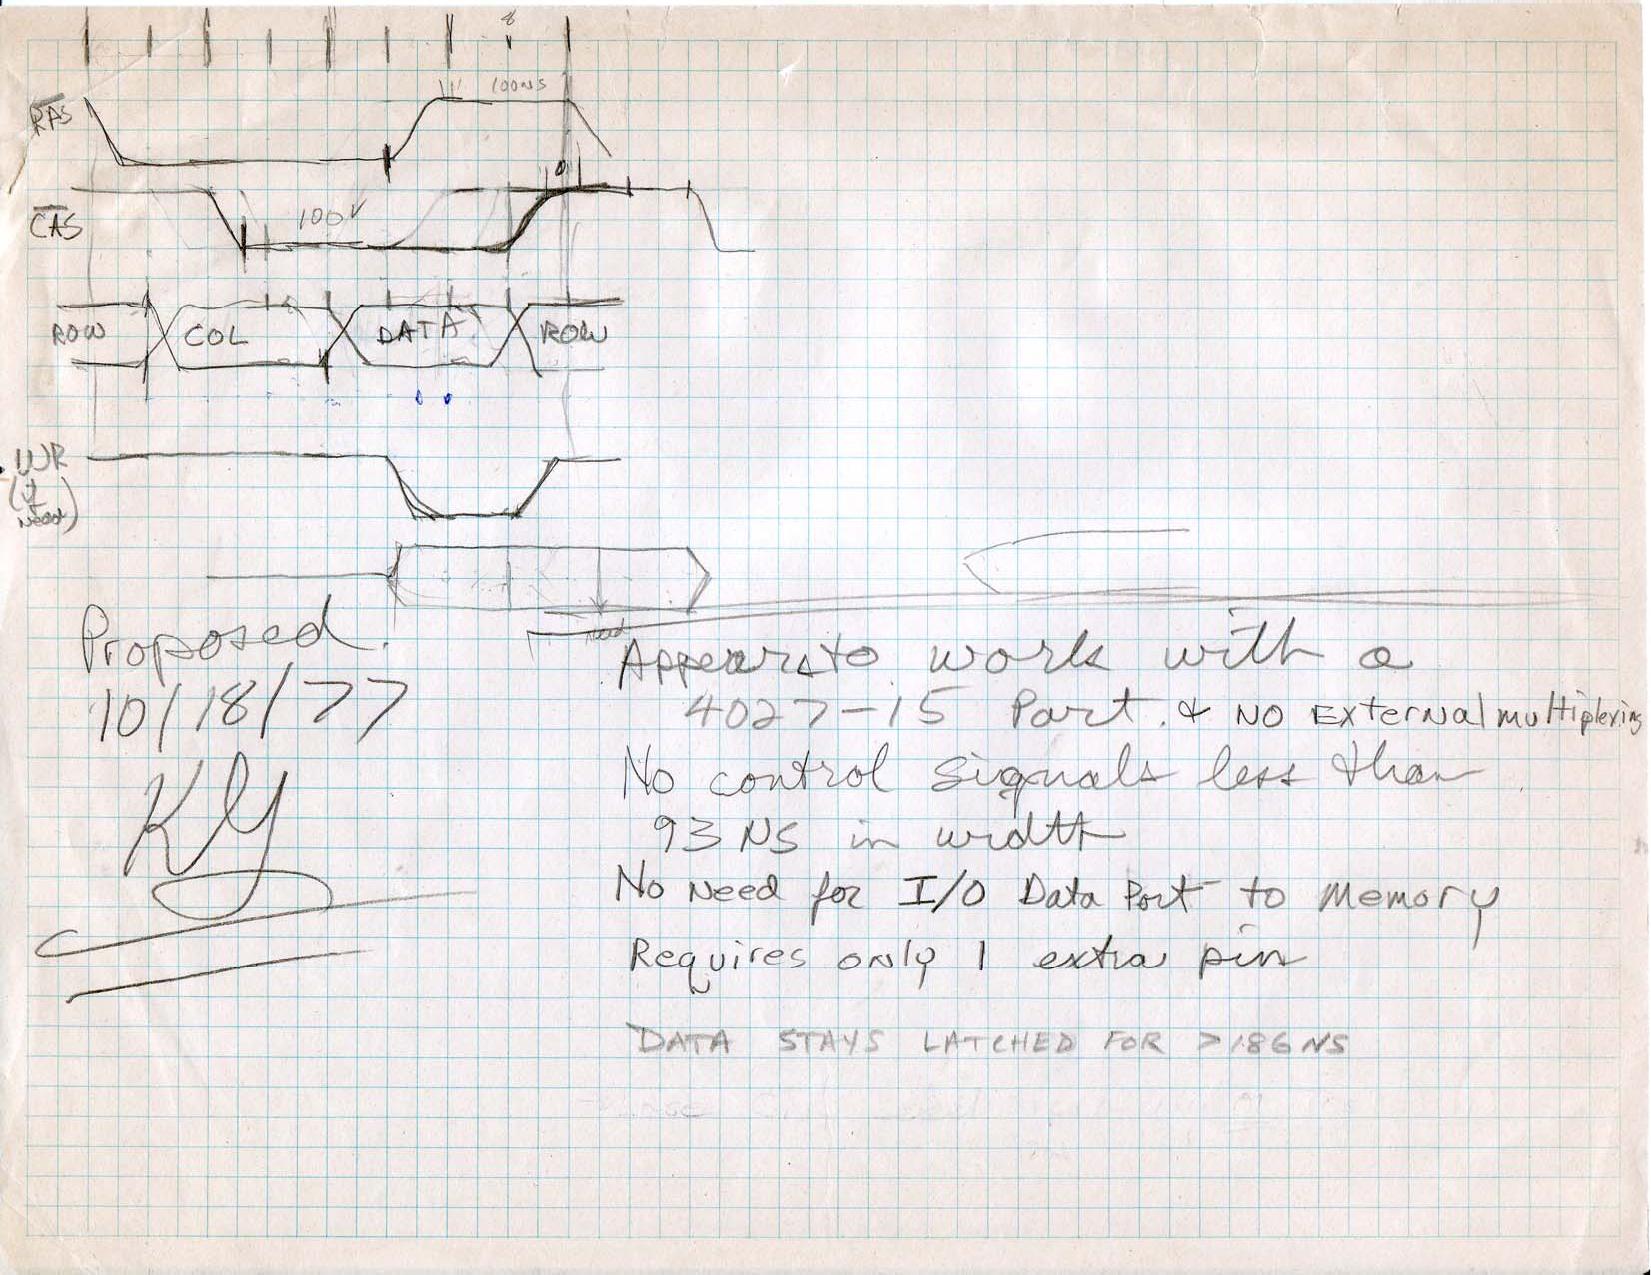 8
100NS
RAS
CAS
100
ROW COL DATA ROW
WR
(if
need)
Proposed.
10/18/77
Appears to work with a
4027-15 Part. & NO External multiplexing
No control signals less than
93 NS in width
No Need for I/O Data Port to Memory
Requires only 1 extra pin
DATA STAYS LATCHED FOR >186NS